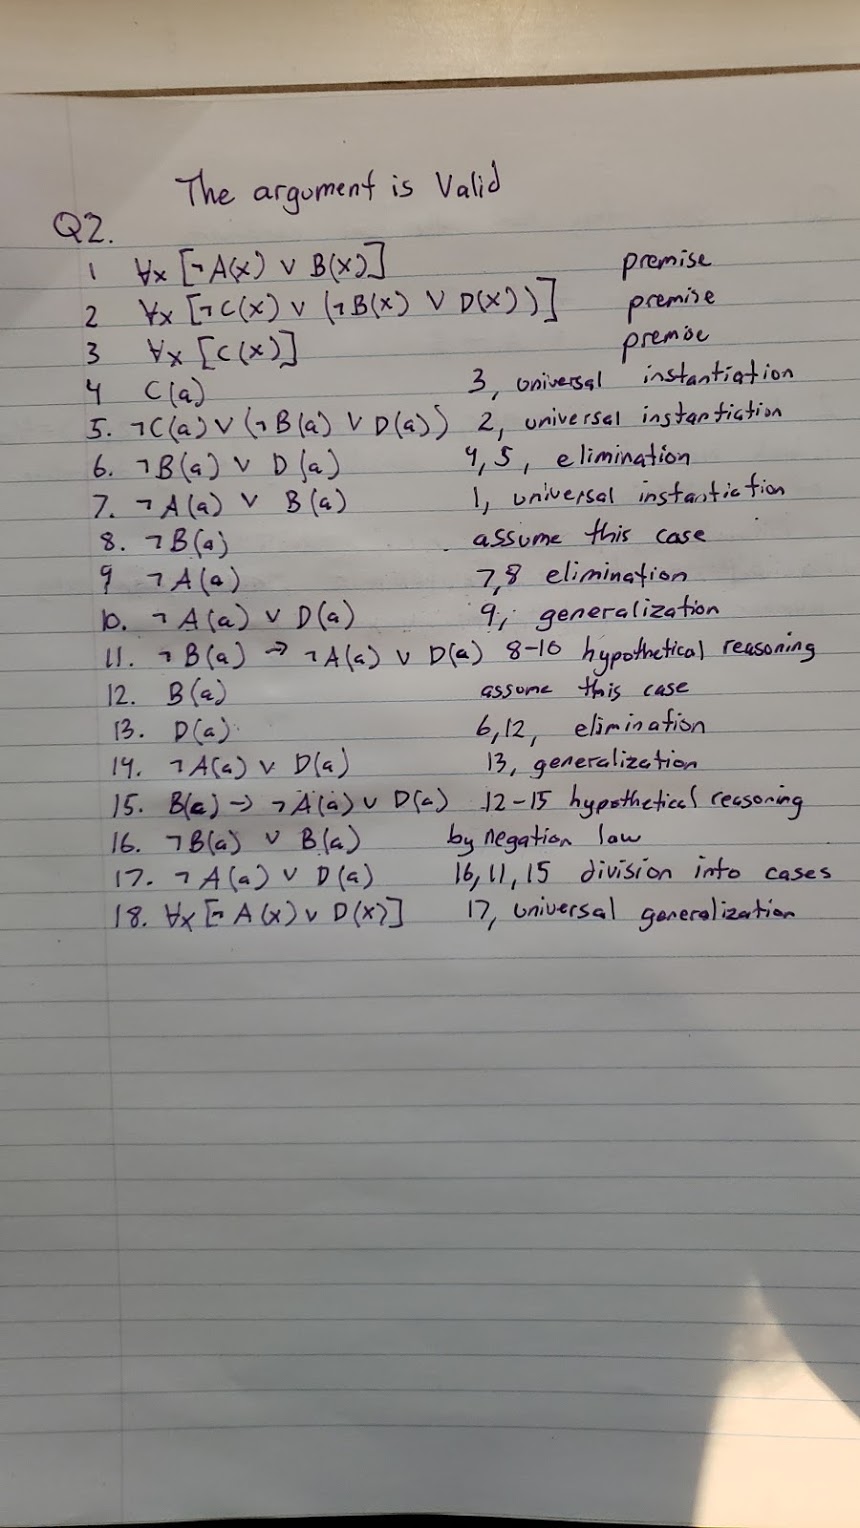 The argument is Valid
Q2.
1 ∀x [¬A(x) ∨ B(x)] premise
2 ∀x [¬C(x) ∨ (¬B(x) ∨ D(x))] premise
3 ∀x [C(x)] premise
4 C(a) 3, universal instantiation
5. ¬C(a) ∨ (¬B(a) ∨ D(a)) 2, universal instantiation
6. ¬B(a) ∨ D(a) 4,5, elimination
7. ¬A(a) ∨ B(a) 1, universal instantiation
8. ¬B(a) assume this case
9 ¬A(a) 7,8 elimination
10. ¬A(a) ∨ D(a) 9, generalization
11. ¬B(a) → ¬A(a) ∨ D(a) 8-10 hypothetical reasoning
12. B(a) assume this case
13. D(a) 6,12, elimination
14. ¬A(a) ∨ D(a) 13, generalization
15. B(a) → ¬A(a) ∨ D(a) 12-15 hypothetical reasoning
16. ¬B(a) ∨ B(a) by negation law
17. ¬A(a) ∨ D(a) 16,11,15 division into cases
18. ∀x [¬A(x) ∨ D(x)] 17, universal generalization